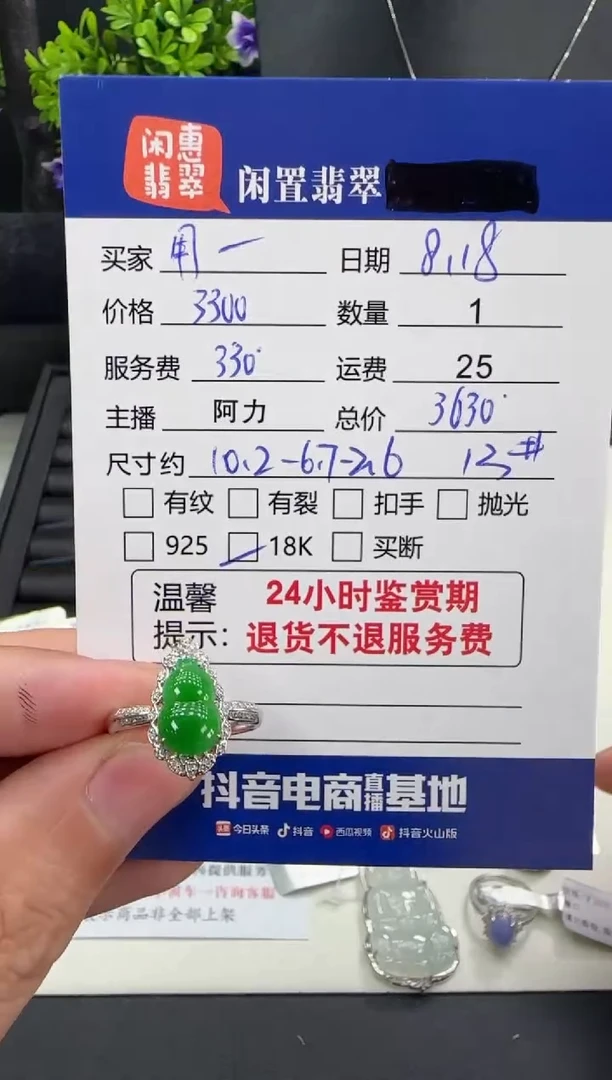 闲惠
翡翠
闲置翡翠
买家 周一 日期 8.18
价格 3300 数量 1
服务费 330 运费 25
主播 阿力 总价 3630
尺寸约 10.2-6.7-2.6 13#
有纹 有裂 扣手 抛光
925 18K 买断
温馨 24小时鉴赏期
提示: 退货不退服务费
抖音电商直播基地
今日头条 抖音 西瓜视频 抖音火山版
提供服务
一咨询客服
商品非全部上架